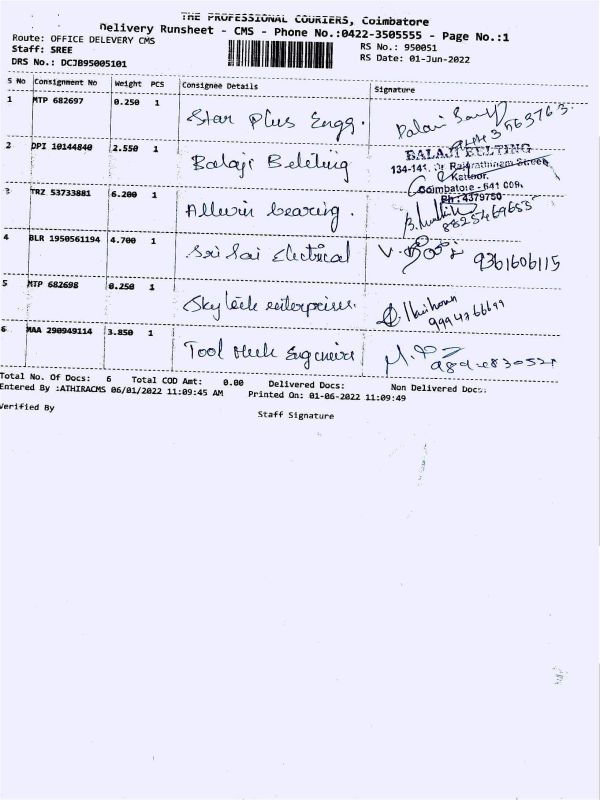 THE PROFESSIONAL COURIERS, Coimbatore
Delivery Runsheet - CMS - Phone No.:0422-3505555 - Page No.:1
Route: OFFICE DELEVERY CMS
RS No.: 950051
Staff: SREE
RS Date: 01-Jun-2022
DRS No.: DCJB95005101
S No Consignment No Weight PCS Consignee Details Signature
1 MTP 682697 0.250 1 Star Plus Engg.
2 DPI 10144840 2.550 1 Balaji Belting
BALAJI BELTING
134-141, Rajarathinam Street
Kattoor.
Coimbatore - 641 009.
Ph: 4379750
3 TRZ 53733881 6.200 1 Allwin bearing. 8825469655
4 BLR 1950561194 4.700 1 Sri Sai Electrical 9361606115
5 MTP 682698 0.250 1 Skytech enterprises.
6 MAA 290949114 3.850 1 Tool Engineers
Total No. Of Docs: 6 Total COD Amt: 0.00 Delivered Docs: Non Delivered Docs:
Entered By :ATHIRACMS 06/01/2022 11:09:45 AM Printed On: 01-06-2022 11:09:49
Verified By
Staff Signature